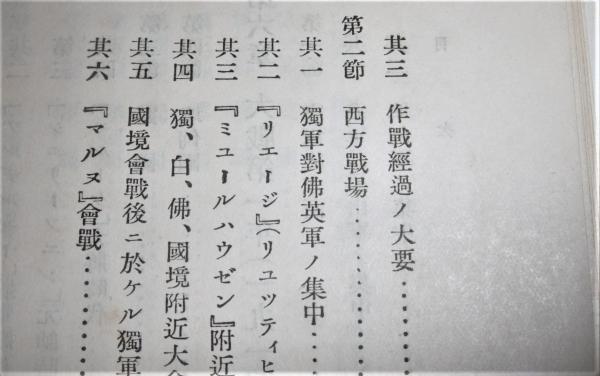 其三 作戰經過ノ大要………
第二節 西方戰場………
其一 獨軍對佛英軍ノ集中……
其二 『リエージ』(リユツティヒ
其三 『ミユールハウゼン』附近
其四 獨、白、佛、國境附近大會
其五 國境會戰後ニ於ケル獨軍
其六 『マルヌ』會戰………